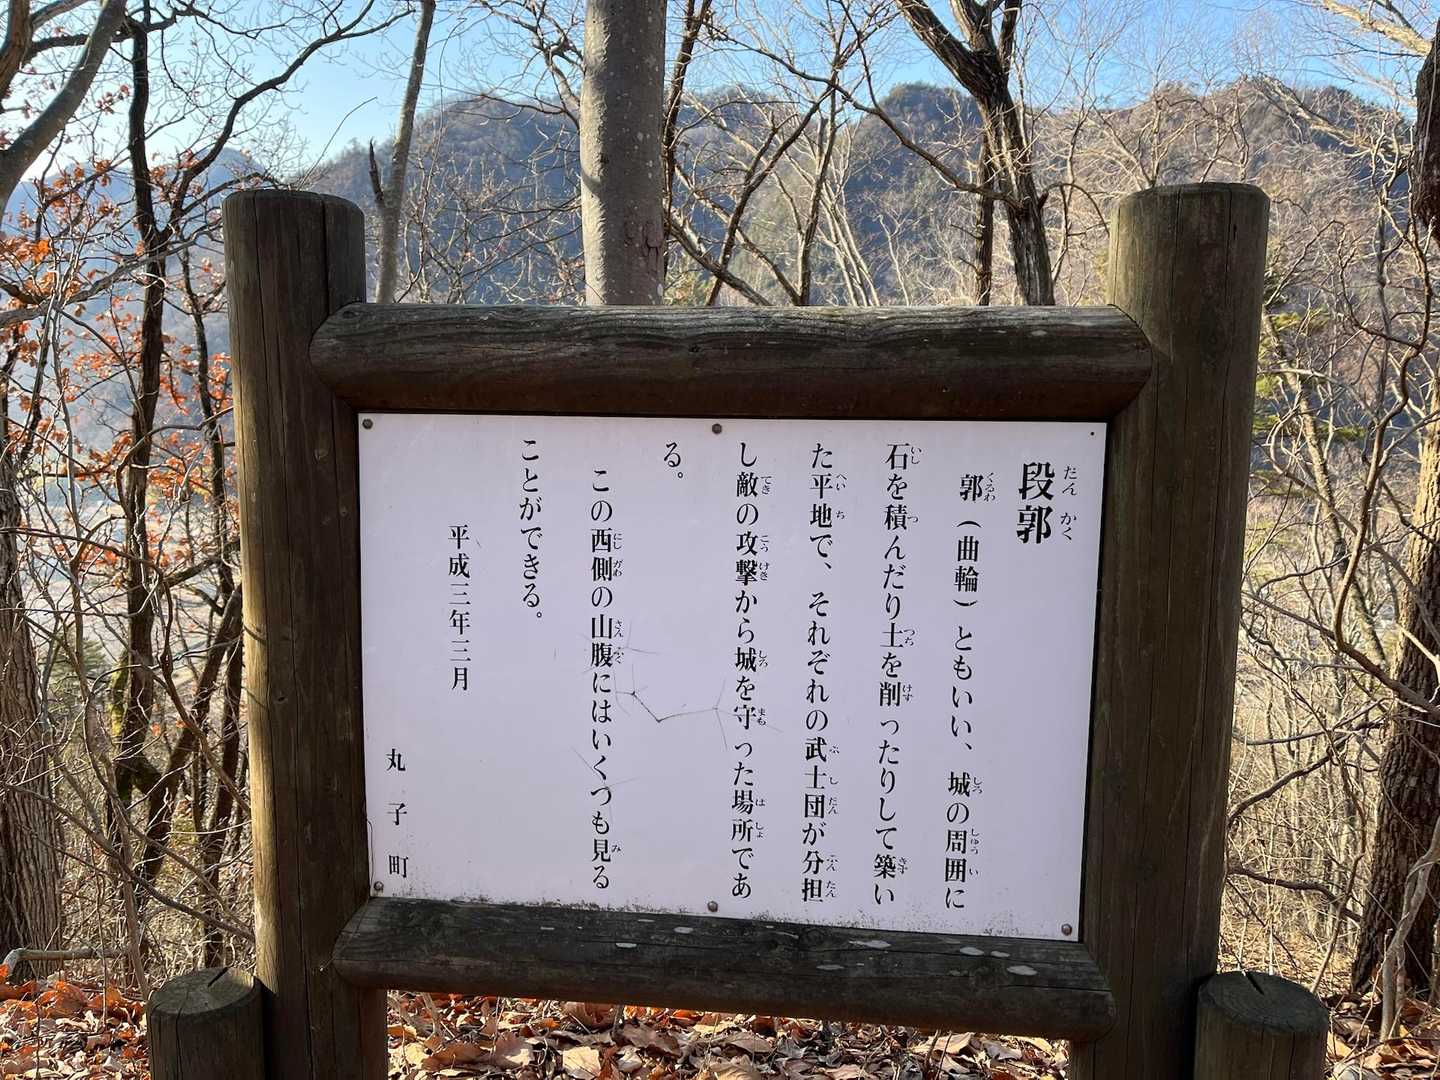 段郭
郭（曲輪）ともいい、城の周囲に
石を積んだり土を削ったりして築い
た平地で、それぞれの武士団が分担
し敵の攻撃から城を守った場所であ
る。
この西側の山腹にはいくつも見る
ことができる。
平成三年三月
丸子町